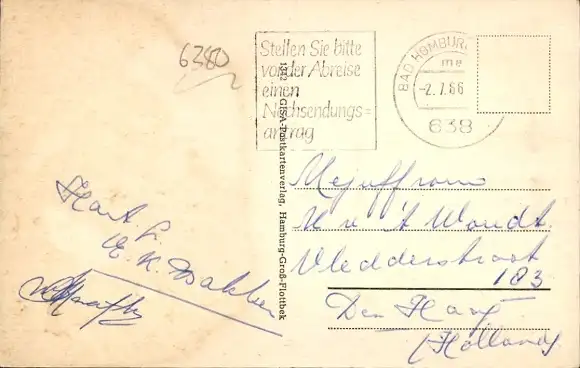 6380
Stellen Sie bitte
vor der Abreise
einen
Nachsendungs=
antrag
BAD HOMBURG
me
-2.7.66
638
1342 GISA-Postkartenverlag, Hamburg-Groß-Flottbek
Mejuffrouw
v 't Woudt
Vledderstraat
183
Den Haag
(Holland)
Hart. Gr.
E. K. Bakker